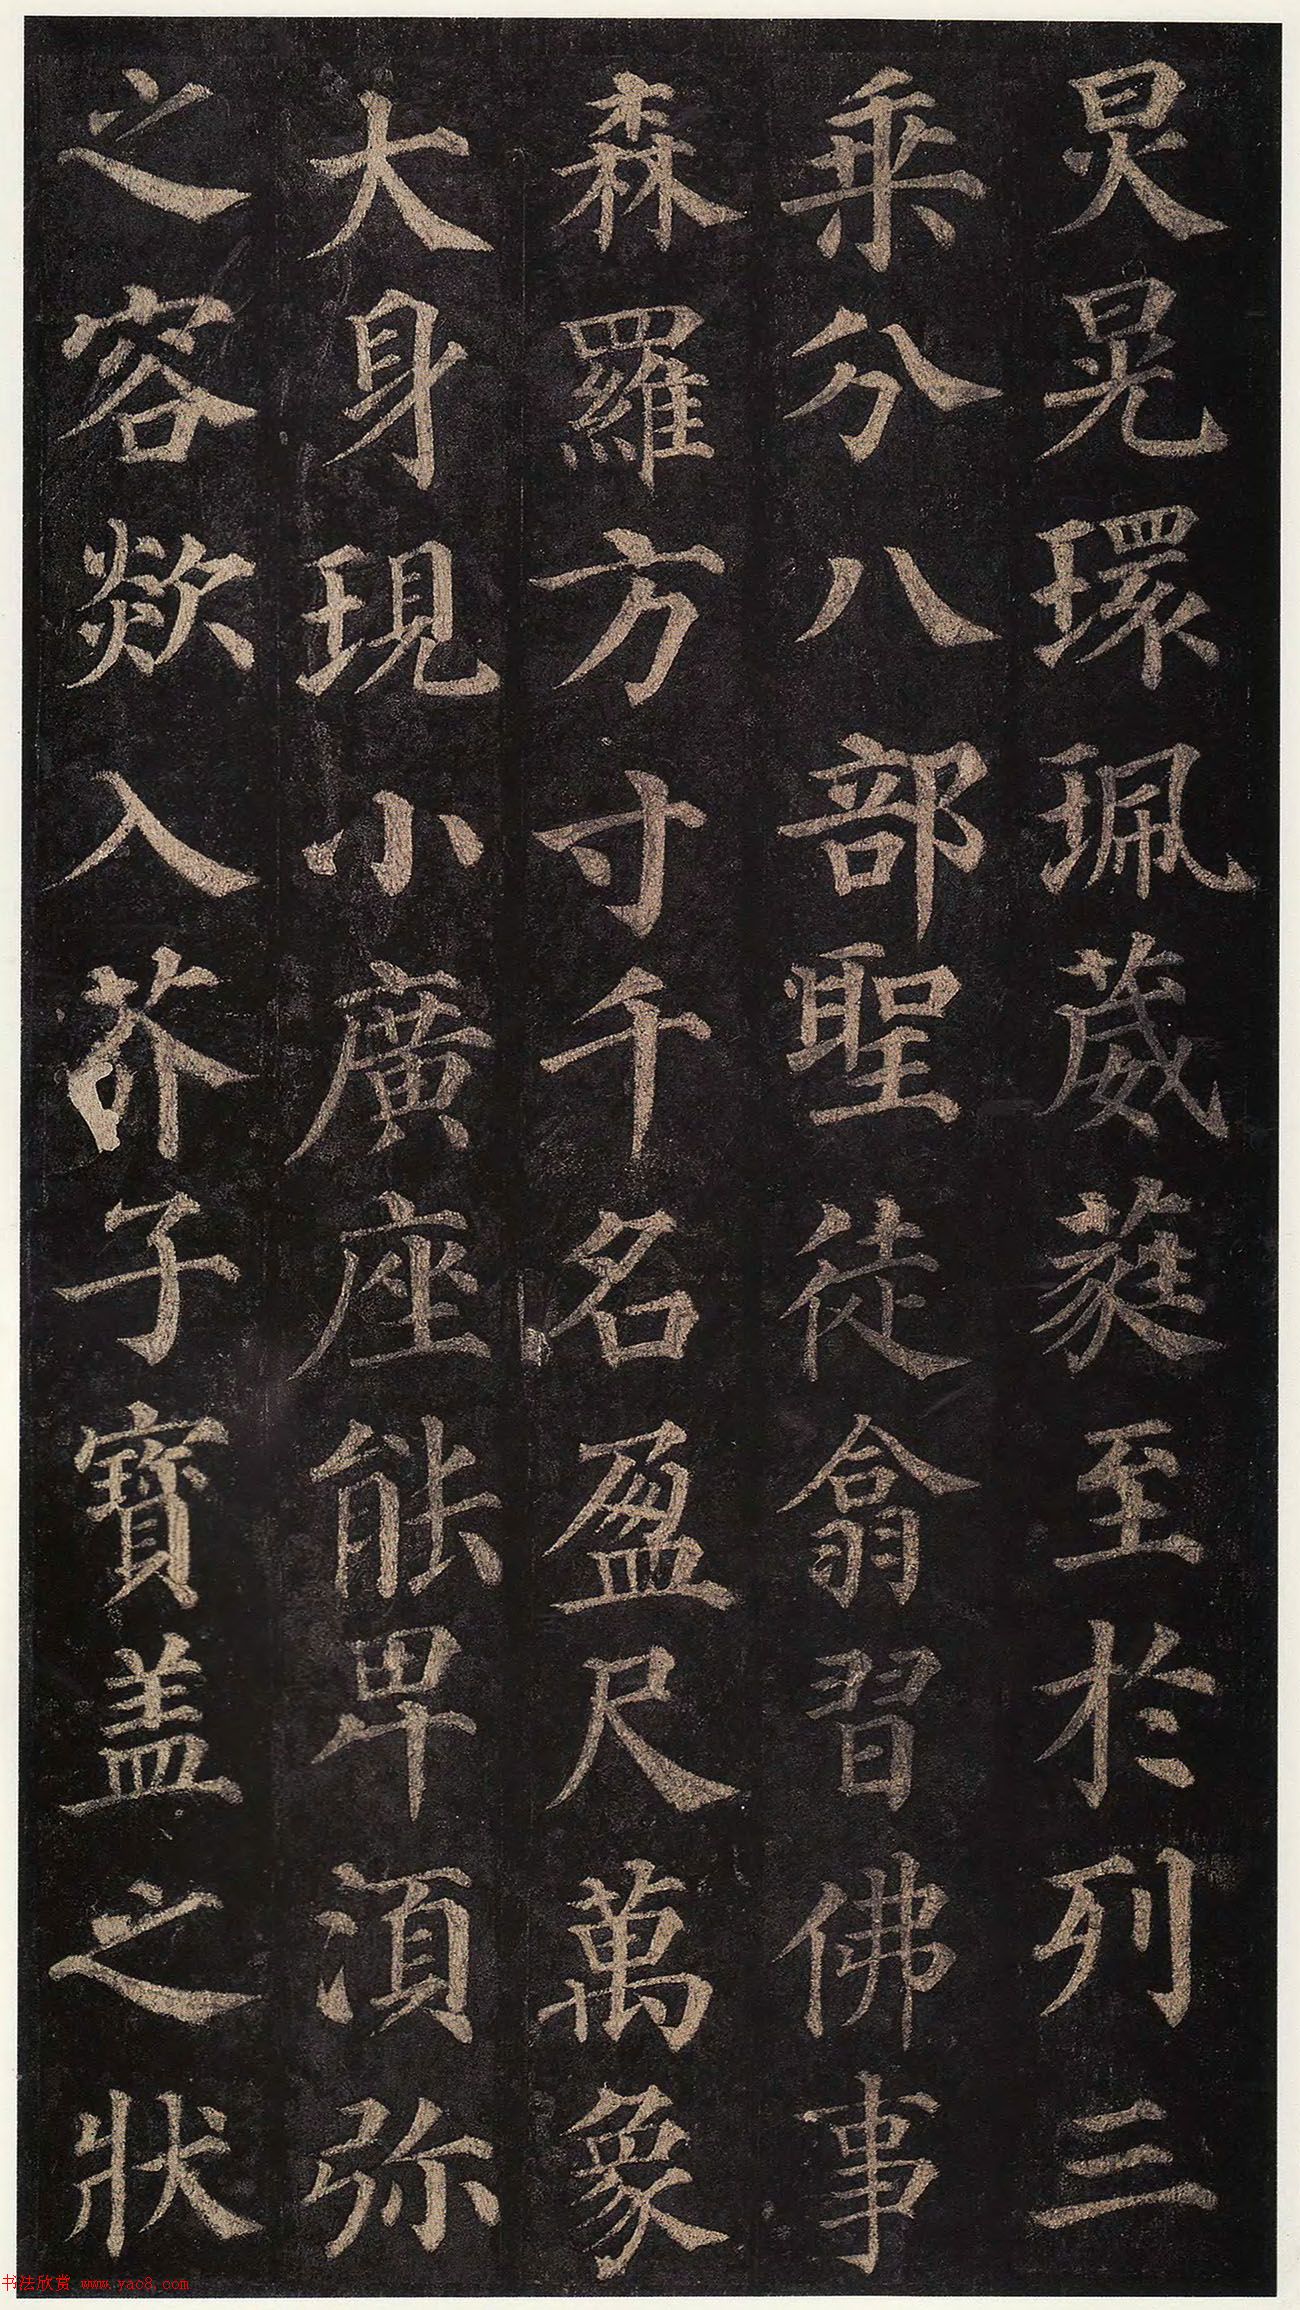 炅晃環珮葳蕤至於列三
乘分八部聖徒翕習佛事
森羅方寸千名盈尺萬象
大身現小廣座能卑須弥
之容欻入芥子寶盖之狀
书法欣赏 www.yac8.com